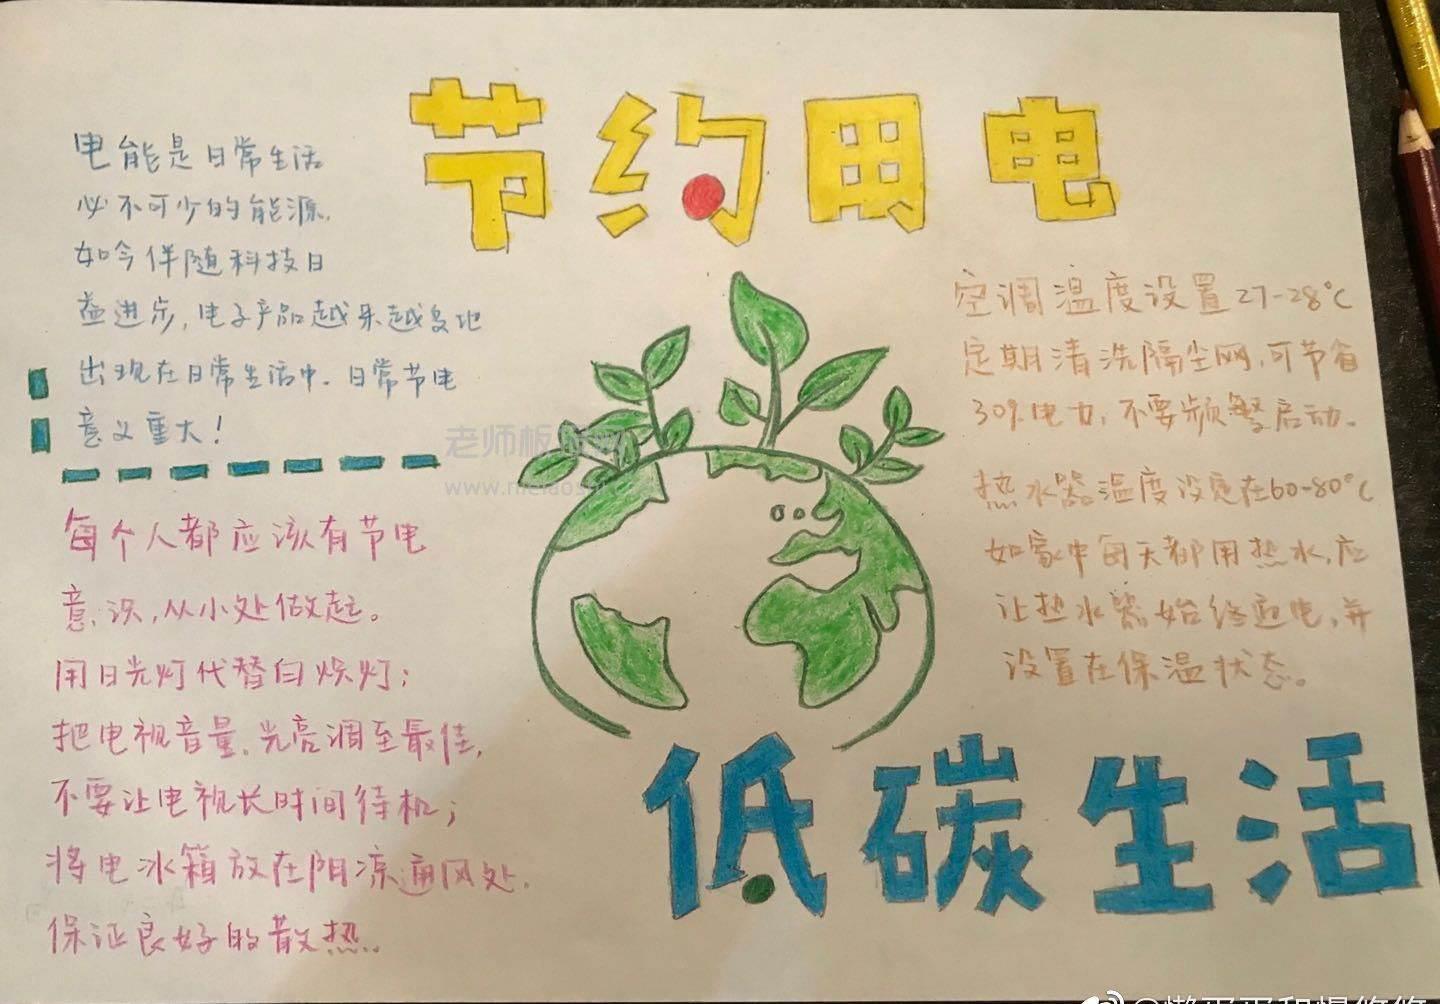 节约用电
电能是日常生活
必不可少的能源,
如今伴随科技日
益进步,电子产品越来越多地
出现在日常生活中.日常节电
意义重大!
每个人都应该有节电
意识,从小处做起。
用日光灯代替白炽灯;
把电视音量、光亮调至最佳,
不要让电视长时间待机;
将电冰箱放在阴凉通风处,
保证良好的散热.
空调温度设置27-28℃
定期清洗隔尘网,可节省
30%电力,不要频繁启动.
热水器温度设定在60-80℃
如家中每天都用热水,应
让热水器始终通电,并
设置在保温状态。
低碳生活
老师板报网